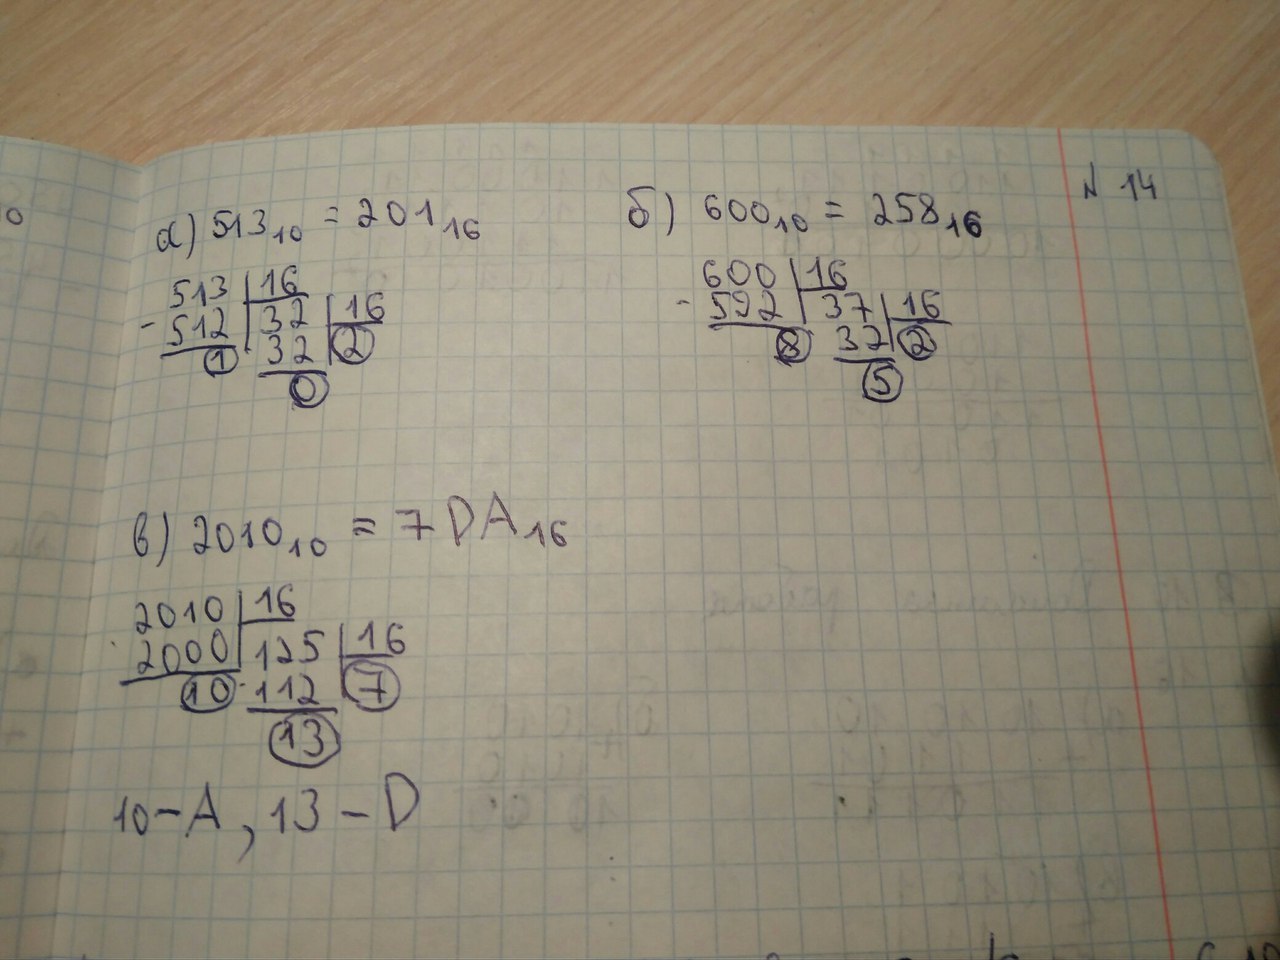 № 14
а) 513₁₀ = 201₁₆
513 | 16
- 512 | 32 | 16
1 | 32 | 2
0
б) 600₁₀ = 258₁₆
600 | 16
- 592 | 37 | 16
8 | 32 | 2
5
в) 2010₁₀ = 7DA₁₆
2010 | 16
- 2000 | 125 | 16
10 - 112 | 7
13
10-A, 13-D